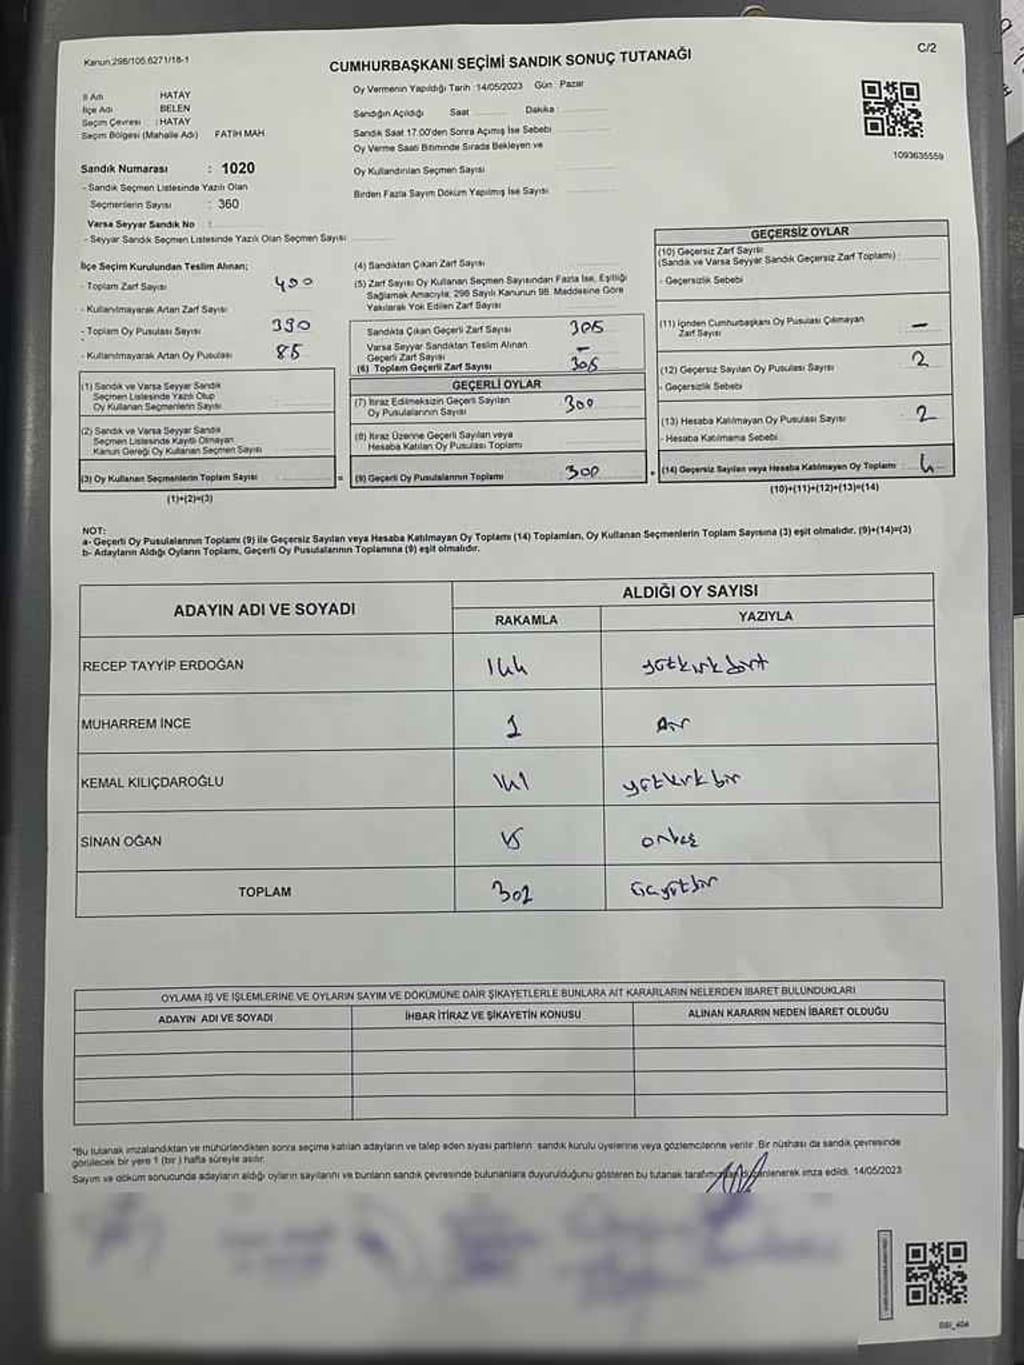 Kanun:298/105.6271/18-1
C/2
CUMHURBAŞKANI SEÇİMİ SANDIK SONUÇ TUTANAĞI
İl Adı HATAY
İlçe Adı BELEN
Seçim Çevresi : HATAY
Seçim Bölgesi (Mahalle Adı) FATİH MAH
Sandık Numarası : 1020
- Sandık Seçmen Listesinde Yazılı Olan
Seçmenlerin Sayısı : 360
Varsa Seyyar Sandık No :
- Seyyar Sandık Seçmen Listesinde Yazılı Olan Seçmen Sayısı
Oy Vermenin Yapıldığı Tarih :14/05/2023 Gün : Pazar
Sandığın Açıldığı Saat Dakika
Sandık Saat 17:00'den Sonra Açılmış İse Sebebi
Oy Verme Saati Bitiminde Sırada Bekleyen ve
Oy Kullandırılan Seçmen Sayısı
Birden Fazla Sayım Döküm Yapılmış İse Sayısı
1093635559
İlçe Seçim Kurulundan Teslim Alınan;
- Toplam Zarf Sayısı 400
- Kullanılmayarak Artan Zarf Sayısı
- Toplam Oy Pusulası Sayısı 390
- Kullanılmayarak Artan Oy Pusulası 85
(1) Sandık ve Varsa Seyyar Sandık
Seçmen Listesinde Yazılı Olup
Oy Kullanan Seçmenlerin Sayısı
(2) Sandık ve Varsa Seyyar Sandık
Seçmen Listesinde Kayıtlı Olmayan
Kanun Gereği Oy Kullanan Seçmen Sayısı
(3) Oy Kullanan Seçmenlerin Toplam Sayısı
(1)+(2)=(3)
=
(4) Sandıktan Çıkan Zarf Sayısı
(5) Zarf Sayısı Oy Kullanan Seçmen Sayısından Fazla İse, Eşitliği
Sağlamak Amacıyla, 298 Sayılı Kanunun 98. Maddesine Göre
Yakılarak Yok Edilen Zarf Sayısı
Sandıkta Çıkan Geçerli Zarf Sayısı 305
Varsa Seyyar Sandıktan Teslim Alınan
Geçerli Zarf Sayısı -
(6) Toplam Geçerli Zarf Sayısı 305
GEÇERLİ OYLAR
(7) İtiraz Edilmeksizin Geçerli Sayılan
Oy Pusulalarının Sayısı 300
(8) İtiraz Üzerine Geçerli Sayılan veya
Hesaba Katılan Oy Pusulası Toplamı
(9) Geçerli Oy Pusulalarının Toplamı 300
GEÇERSİZ OYLAR
(10) Geçersiz Zarf Sayısı
(Sandık ve Varsa Seyyar Sandık Geçersiz Zarf Toplamı) :
- Geçersizlik Sebebi
(11) İçinden Cumhurbaşkanı Oy Pusulası Çıkmayan
Zarf Sayısı -
(12) Geçersiz Sayılan Oy Pusulası Sayısı 2
- Geçersizlik Sebebi
(13) Hesaba Katılmayan Oy Pusulası Sayısı 2
- Hesaba Katılmama Sebebi
(14) Geçersiz Sayılan veya Hesaba Katılmayan Oy Toplamı 4
(10)+(11)+(12)+(13)=(14)
NOT:
a- Geçerli Oy Pusulalarının Toplamı (9) ile Geçersiz Sayılan veya Hesaba Katılmayan Oy Toplamı (14) Toplamları, Oy Kullanan Seçmenlerin Toplam Sayısına (3) eşit olmalıdır. (9)+(14)=(3)
b- Adayların Aldığı Oyların Toplamı, Geçerli Oy Pusulalarının Toplamına (9) eşit olmalıdır.
ADAYIN ADI VE SOYADI
ALDIĞI OY SAYISI
RAKAMLA YAZIYLA
RECEP TAYYİP ERDOĞAN 144 yüzkırkdört
MUHARREM İNCE 1
KEMAL KILIÇDAROĞLU 141 yüzkırkbir
SİNAN OĞAN 15 onbeş
TOPLAM 301 üçyüzbir
OYLAMA İŞ VE İŞLEMLERİNE VE OYLARIN SAYIM VE DÖKÜMÜNE DAİR ŞİKAYETLERLE BUNLARA AİT KARARLARIN NELERDEN İBARET BULUNDUKLARI
ADAYIN ADI VE SOYADI İHBAR İTİRAZ VE ŞİKAYETİN KONUSU ALINAN KARARIN NEDEN İBARET OLDUĞU
*Bu tutanak imzalandıktan ve mühürlendikten sonra seçime katılan adayların ve talep eden siyasi partilerin sandık kurulu üyelerine veya gözlemcilerine verilir. Bir nüshası da sandık çevresinde
görülecek bir yere 1 (bir) hafta süreyle asılır.
Sayım ve döküm sonucunda adayların aldığı oyların sayılarını ve bunların sandık çevresinde bulunanlara duyurulduğunu gösteren bu tutanak tarafımızdan düzenlenerek imza edildi. 14/05/2023